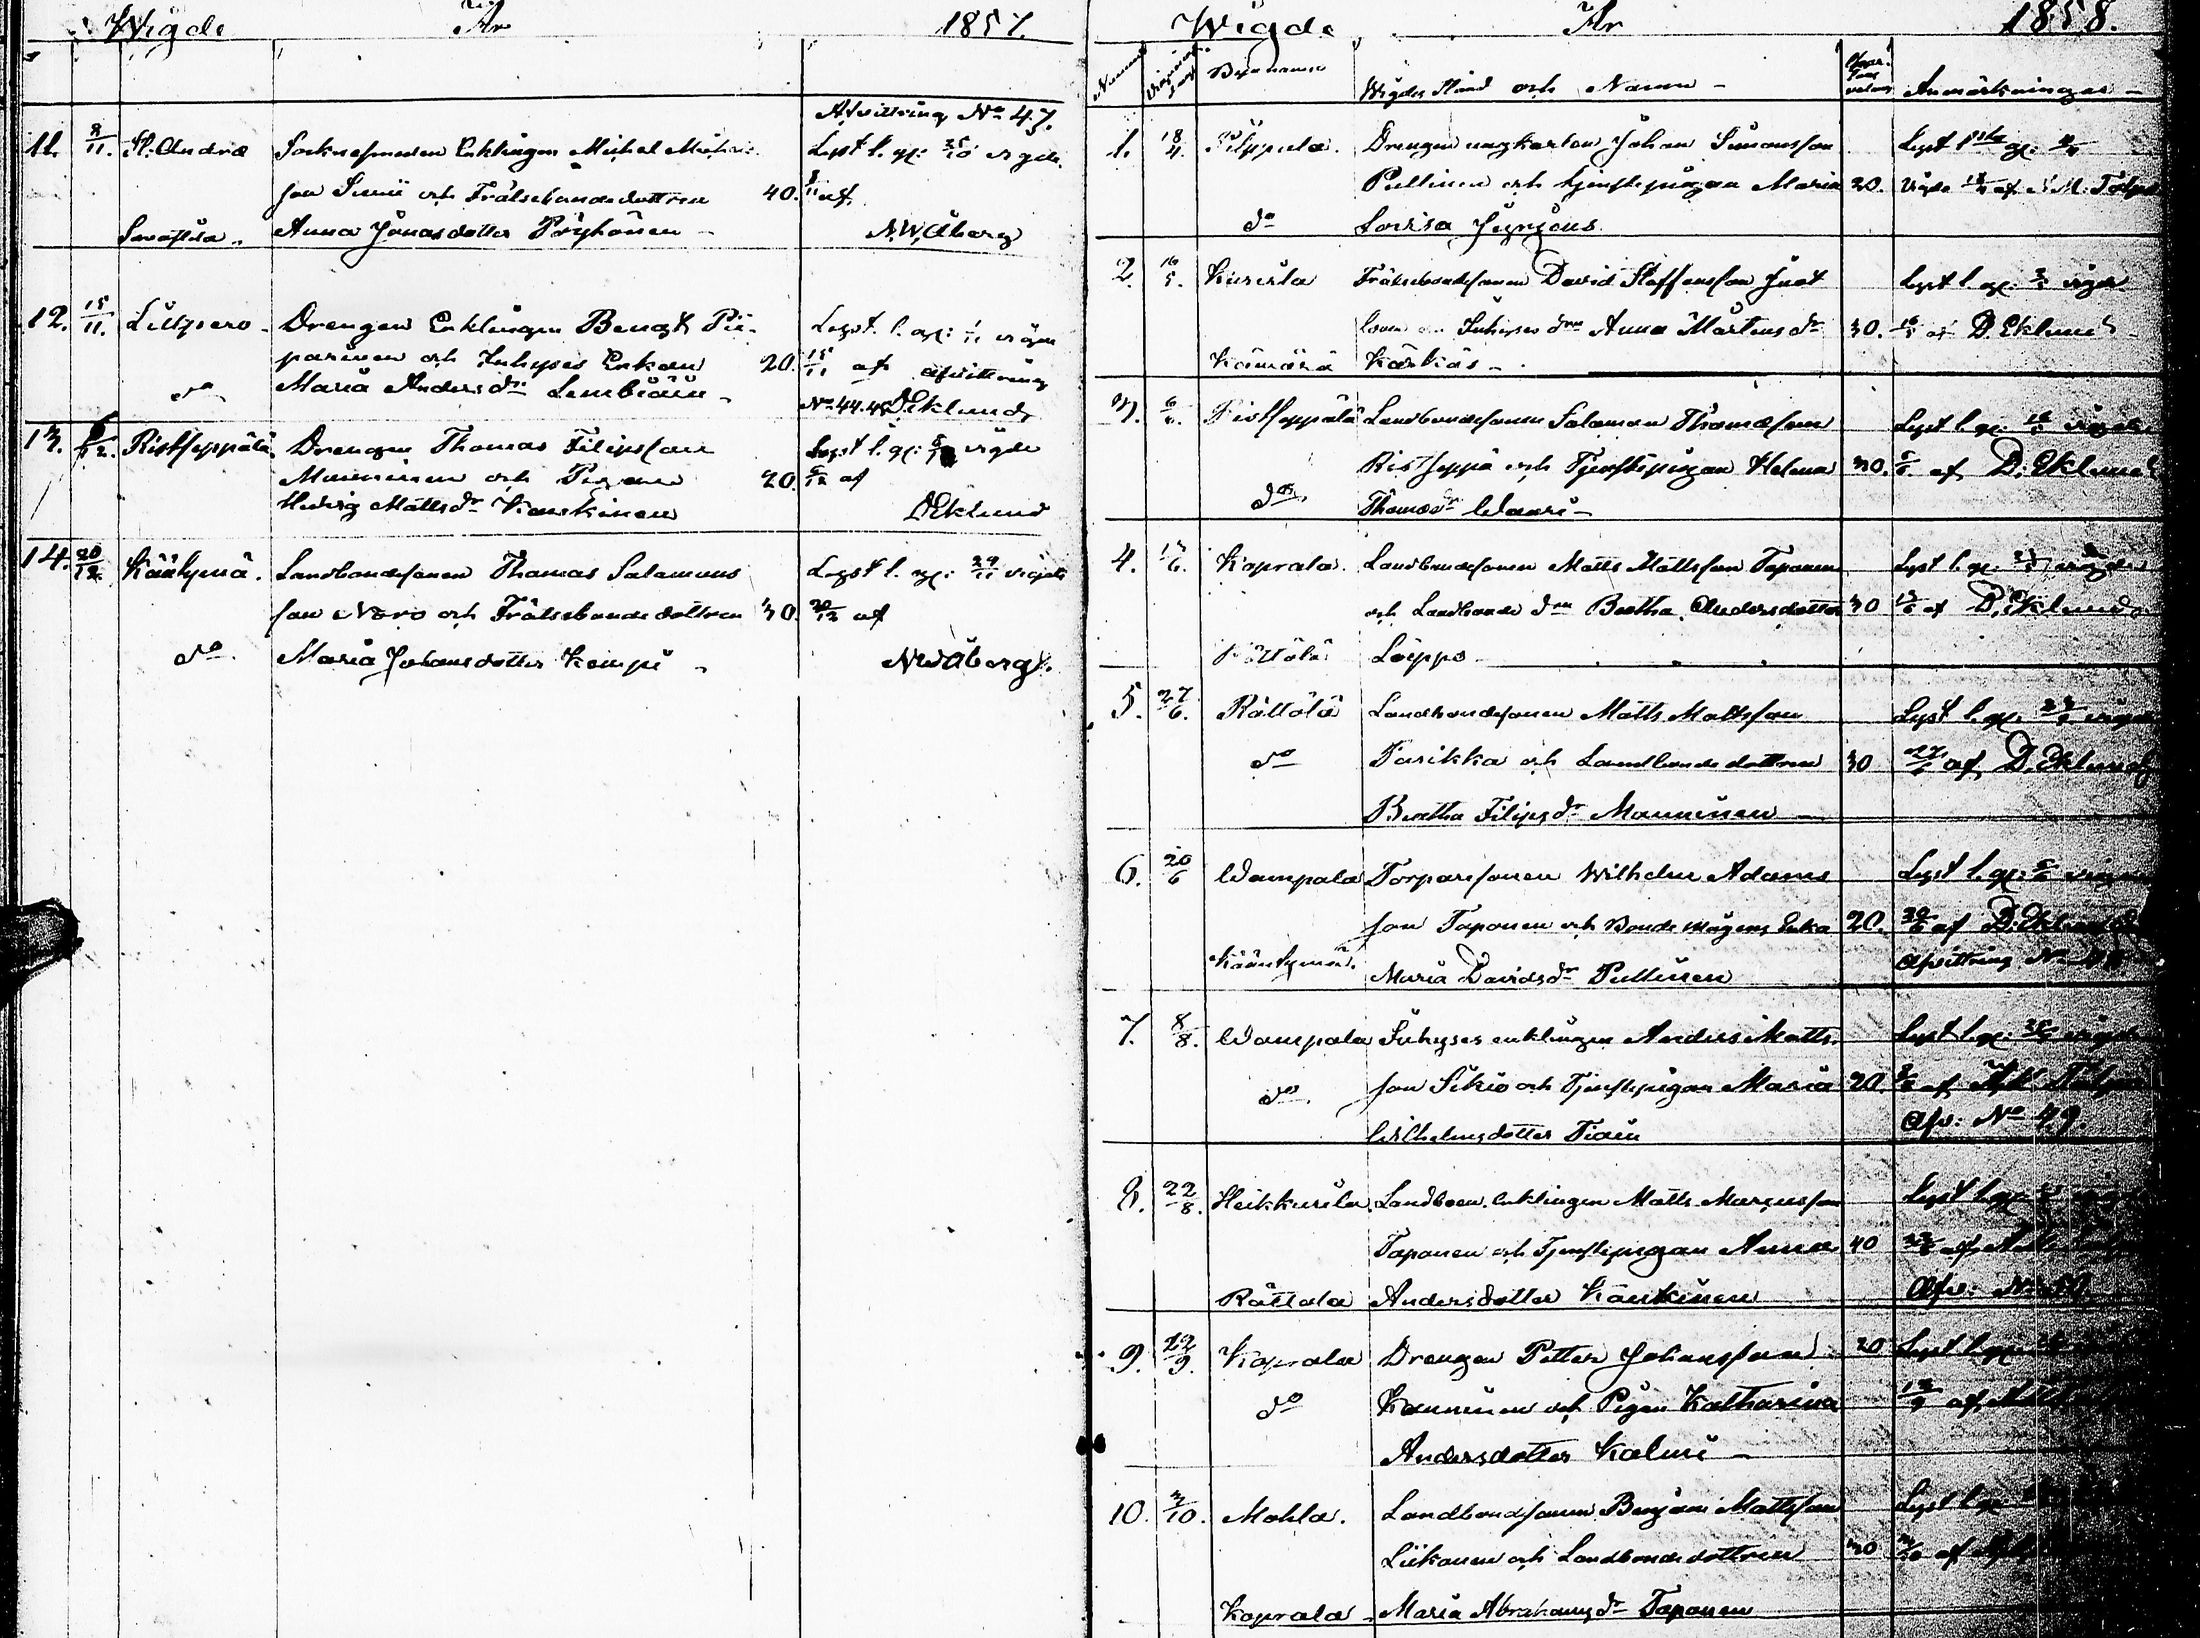 Wigde År 1857.
11. 8/11. St: Andræ Socknesmeden Enklingen Michel Michels-
son Sunii och Frälsebondedottren 40.
Savastila. Anna Jonasdotter Pöyhönen
Afvittring No 47.
Lyst 1. g: 25/10 vigde
8/11 af
N.W. Åberg
12. 15/11. Liikpero Drengen Enklingen Bengt Pii-
parinen och Inhyses Enkan 20.
do Maria Anders dr Lembiäin
Lyst. 1. g: 1/11 vigde
15/11 af afvittring
No 44.45 D Eklund
13. 6/12. Ristseppälä. Drengen Thomas Filipsson
Manninen och Pigan 20.
Hedvig Matts dr Kauskinen
Lyst 1. g: vigde
6/12 af
D Eklund
14. 20/12. Kääntymä. Landbondesonen Thomas Salomons
son Noro och Frälsebondedottren 30.
do. Maria Johansdotter Kempi
Lyst 1. g: 29/11 vigde
20/12 af
N W Åberg.
Wigde År 1858.
Numer Vigningsdag Byanamn Wigdes Stånd och Namn Anmärkningar
1. 18/4. Pilppula. Drengen ungkarlen Johan Simonsson
Pullinen och tjenstepigan Maria 20.
do Lovisa Jögnjöns.
Lyst 1sta g:
vigde 18/4 af
2. 16/5. Kurisla Frälsebondesonen David Staffansson Just
Inhyses drn Anna Mårtens dr 30.
Kämärä Kärkäs
Lyst 1. g: 2/5 vigde
16/5 af D. Eklund
3. 6/6. Ristseppälä Landbondesonen Salomon Thomasson
Ristseppä och Tjenstepigan Helena 30.
do. Thomas dr Waari
Lyst 1. g: 16/5 vigde
6/6. af D. Eklund
4. 13/6. Koprala. Landbondesonen Matts Mattsson Taponen
och Landbonde drn Beatha Andersdotter 30
Rättölä Loippo
Lyst 1. g: vigde
13/6 af D. Eklund
5. 27/6. Rättölä Landbondesonen Matts Mattsson
do Tarikka och Landbondedottren 30
Beatha Filips dr Manninen
Lyst 1. g: 23/5 vigde
27/6 af D. Eklund
6. 20/6 Wampala Torparesonen Wilhelm Adams
son Taponen och Bonde mågens Enka 20.
Kääntymä. Maria Davids dr Pullinen
Lyst 1. g: 6/6 vigde
20/6 af D. Eklund
Afvittring No
7. 8/8. Wampala Inhyses enklingen Anders Matts-
do. son Sikiö och Tjenstepigan Maria 20
Wilhelmsdotter Tiain
Lyst 1. g: 25/7 vigde
8/8 af
Afv: No 49.
8. 22/8. Heikkurila. Landboen. Enklingen Matts Marcusson
Taponen och Tjenstepigan Anna 40
Rättölä Andersdotter Käukinen
Lyst 1. g:
22/8 af
Afv: No 50.
9. 12/9. Koprala Drengen Petter Johansson 20
do Kanninen och Pigan Katharina
Andersdotter Kalmi
Lyst 1. g:
12/9 af
10. 3/10. Mohla. Landbondesonen Benjam Mattsson
Liikanen och Landbondedottren 30
Koprala Maria Abrahams dr Taponen
Lyst 1. g:
3/10 af